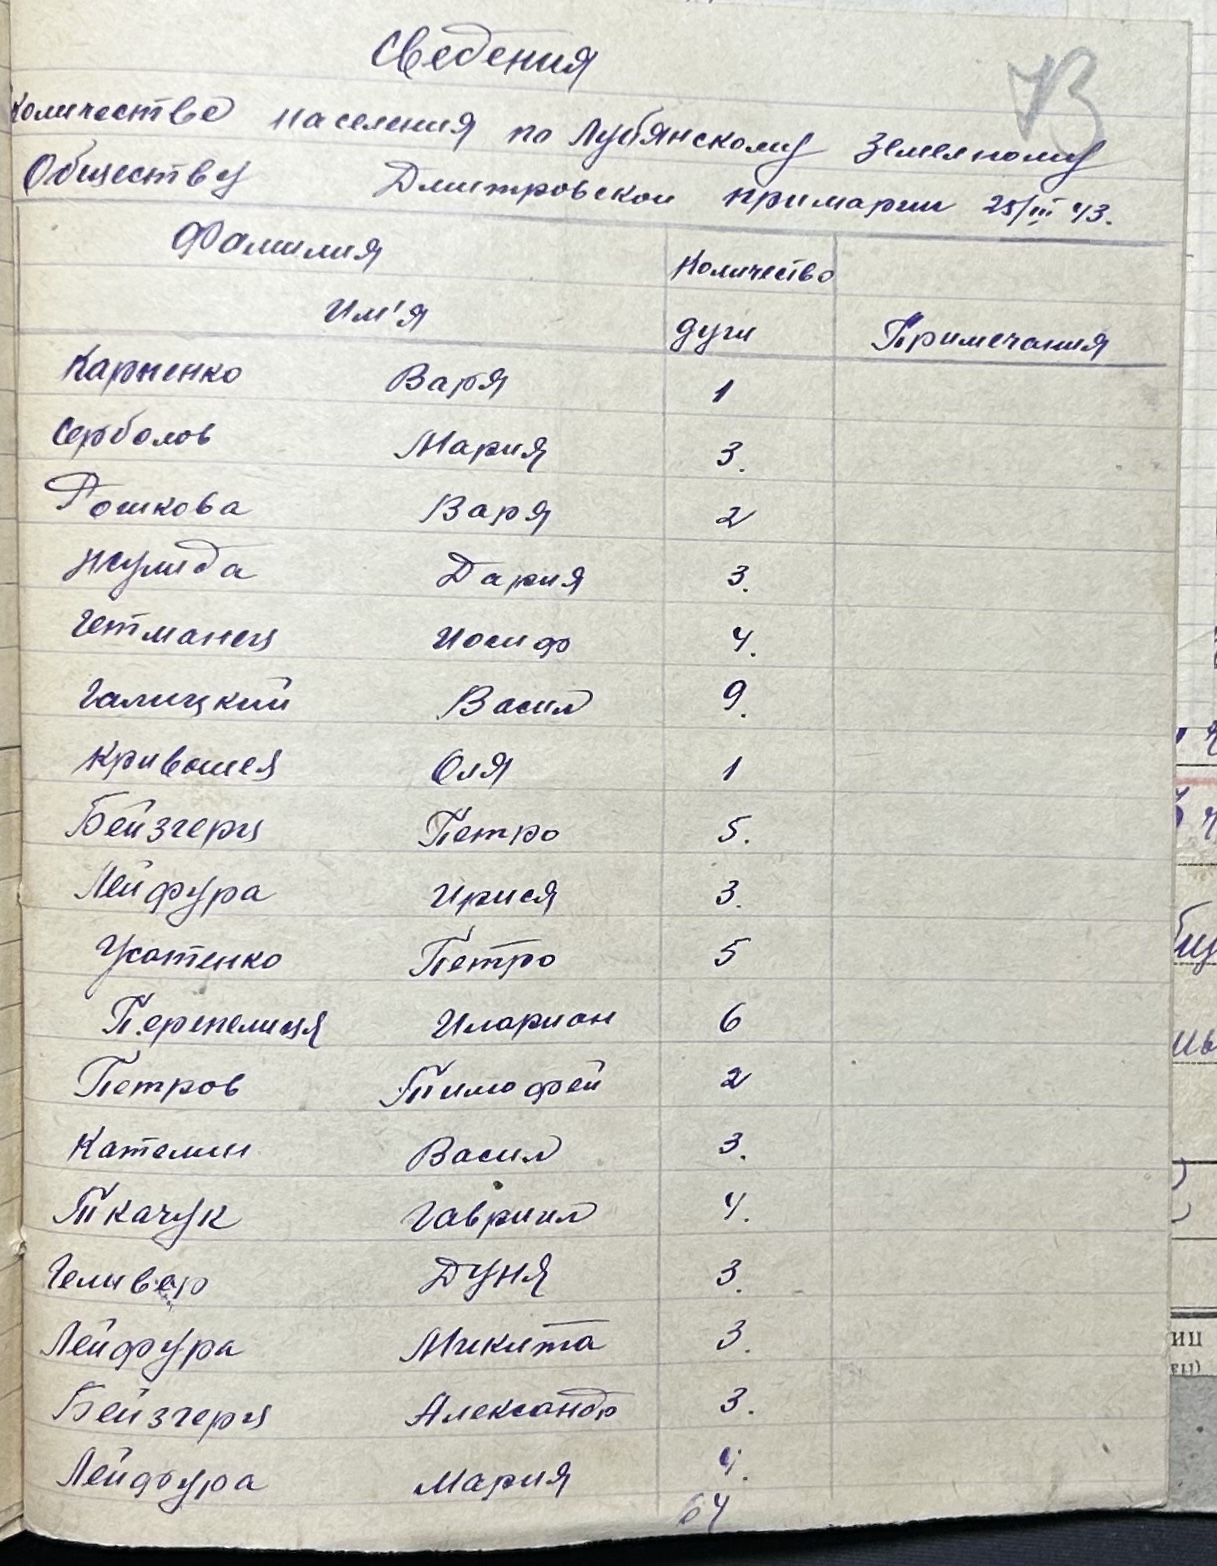 Сведения
Количестве населения по Лубянскому Земелному
Обществу Дмитровской примарии 25/III 43.
Фамилия Количество
Им'я душ Примечания
Карпенко Варя 1
Серболов Мария 3.
Рошкова Варя 2
Жулида Дария 3.
Гетманец Иосиф 4.
Галицкий Васил 9.
Кривошея Оля 1
Бейзгерц Петро 5.
Лейфура Ирися 3.
Усатенко Петро 5
Перепелиця Иларион 6
Петров Тимофей 2
Кателин Васил 3.
Ткачук Гавриил 4.
Геливер Дуня 3.
Лейфура Микита 3.
Бейзгерц Александр 3.
Лейфура Мария 4.
64